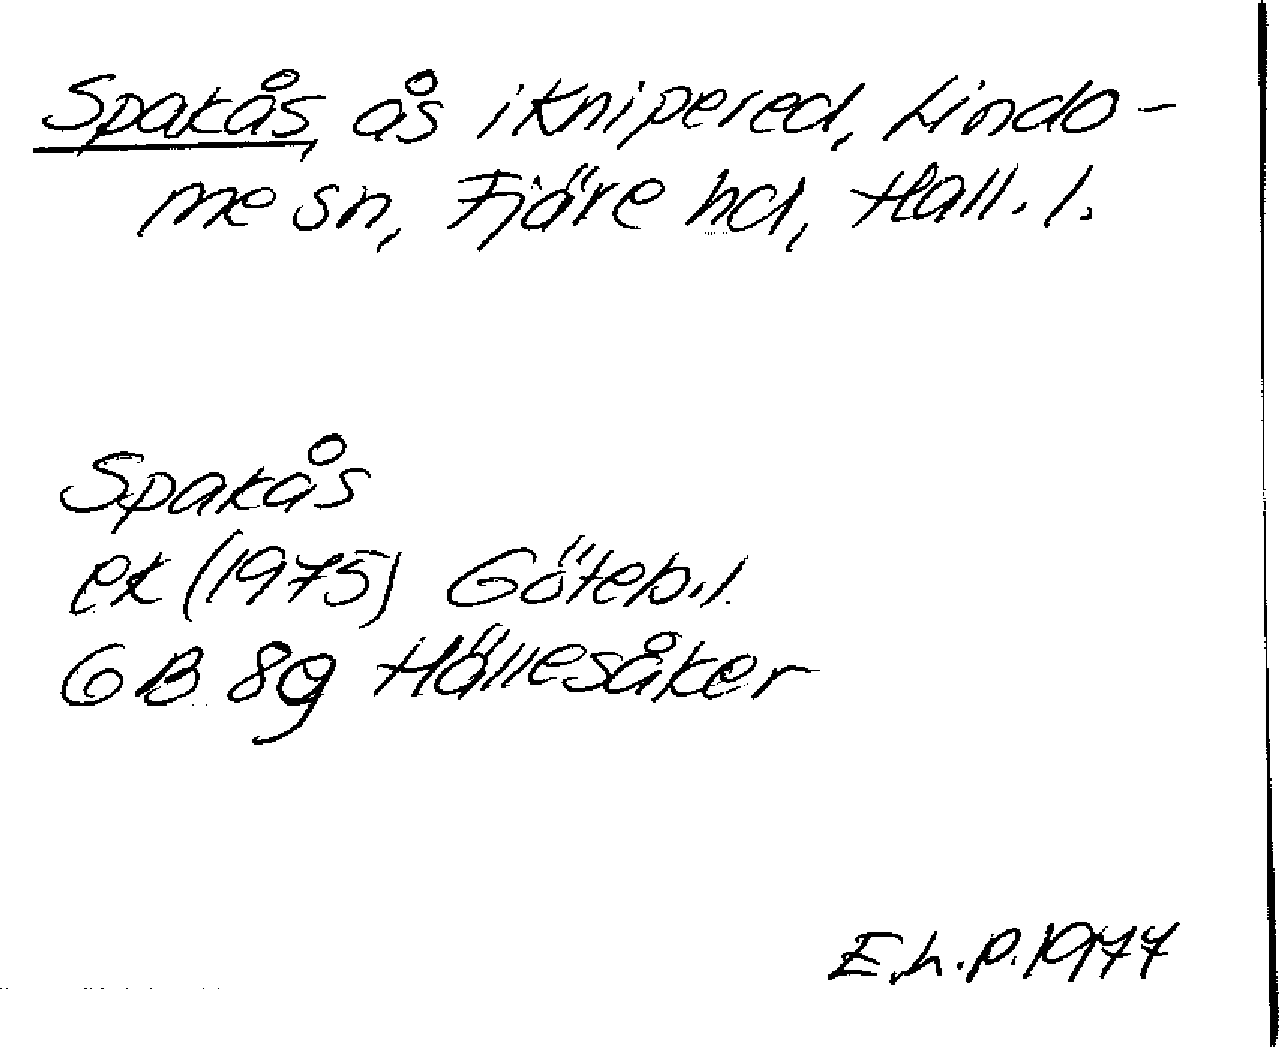 Spakås, ås i Knipered, Lindo-
me sn, Fjäre hd, Hall. l.
Spakås
ek (1975) Göteb. l.
6 B 8g Hällesåker
E.L.P. 1977